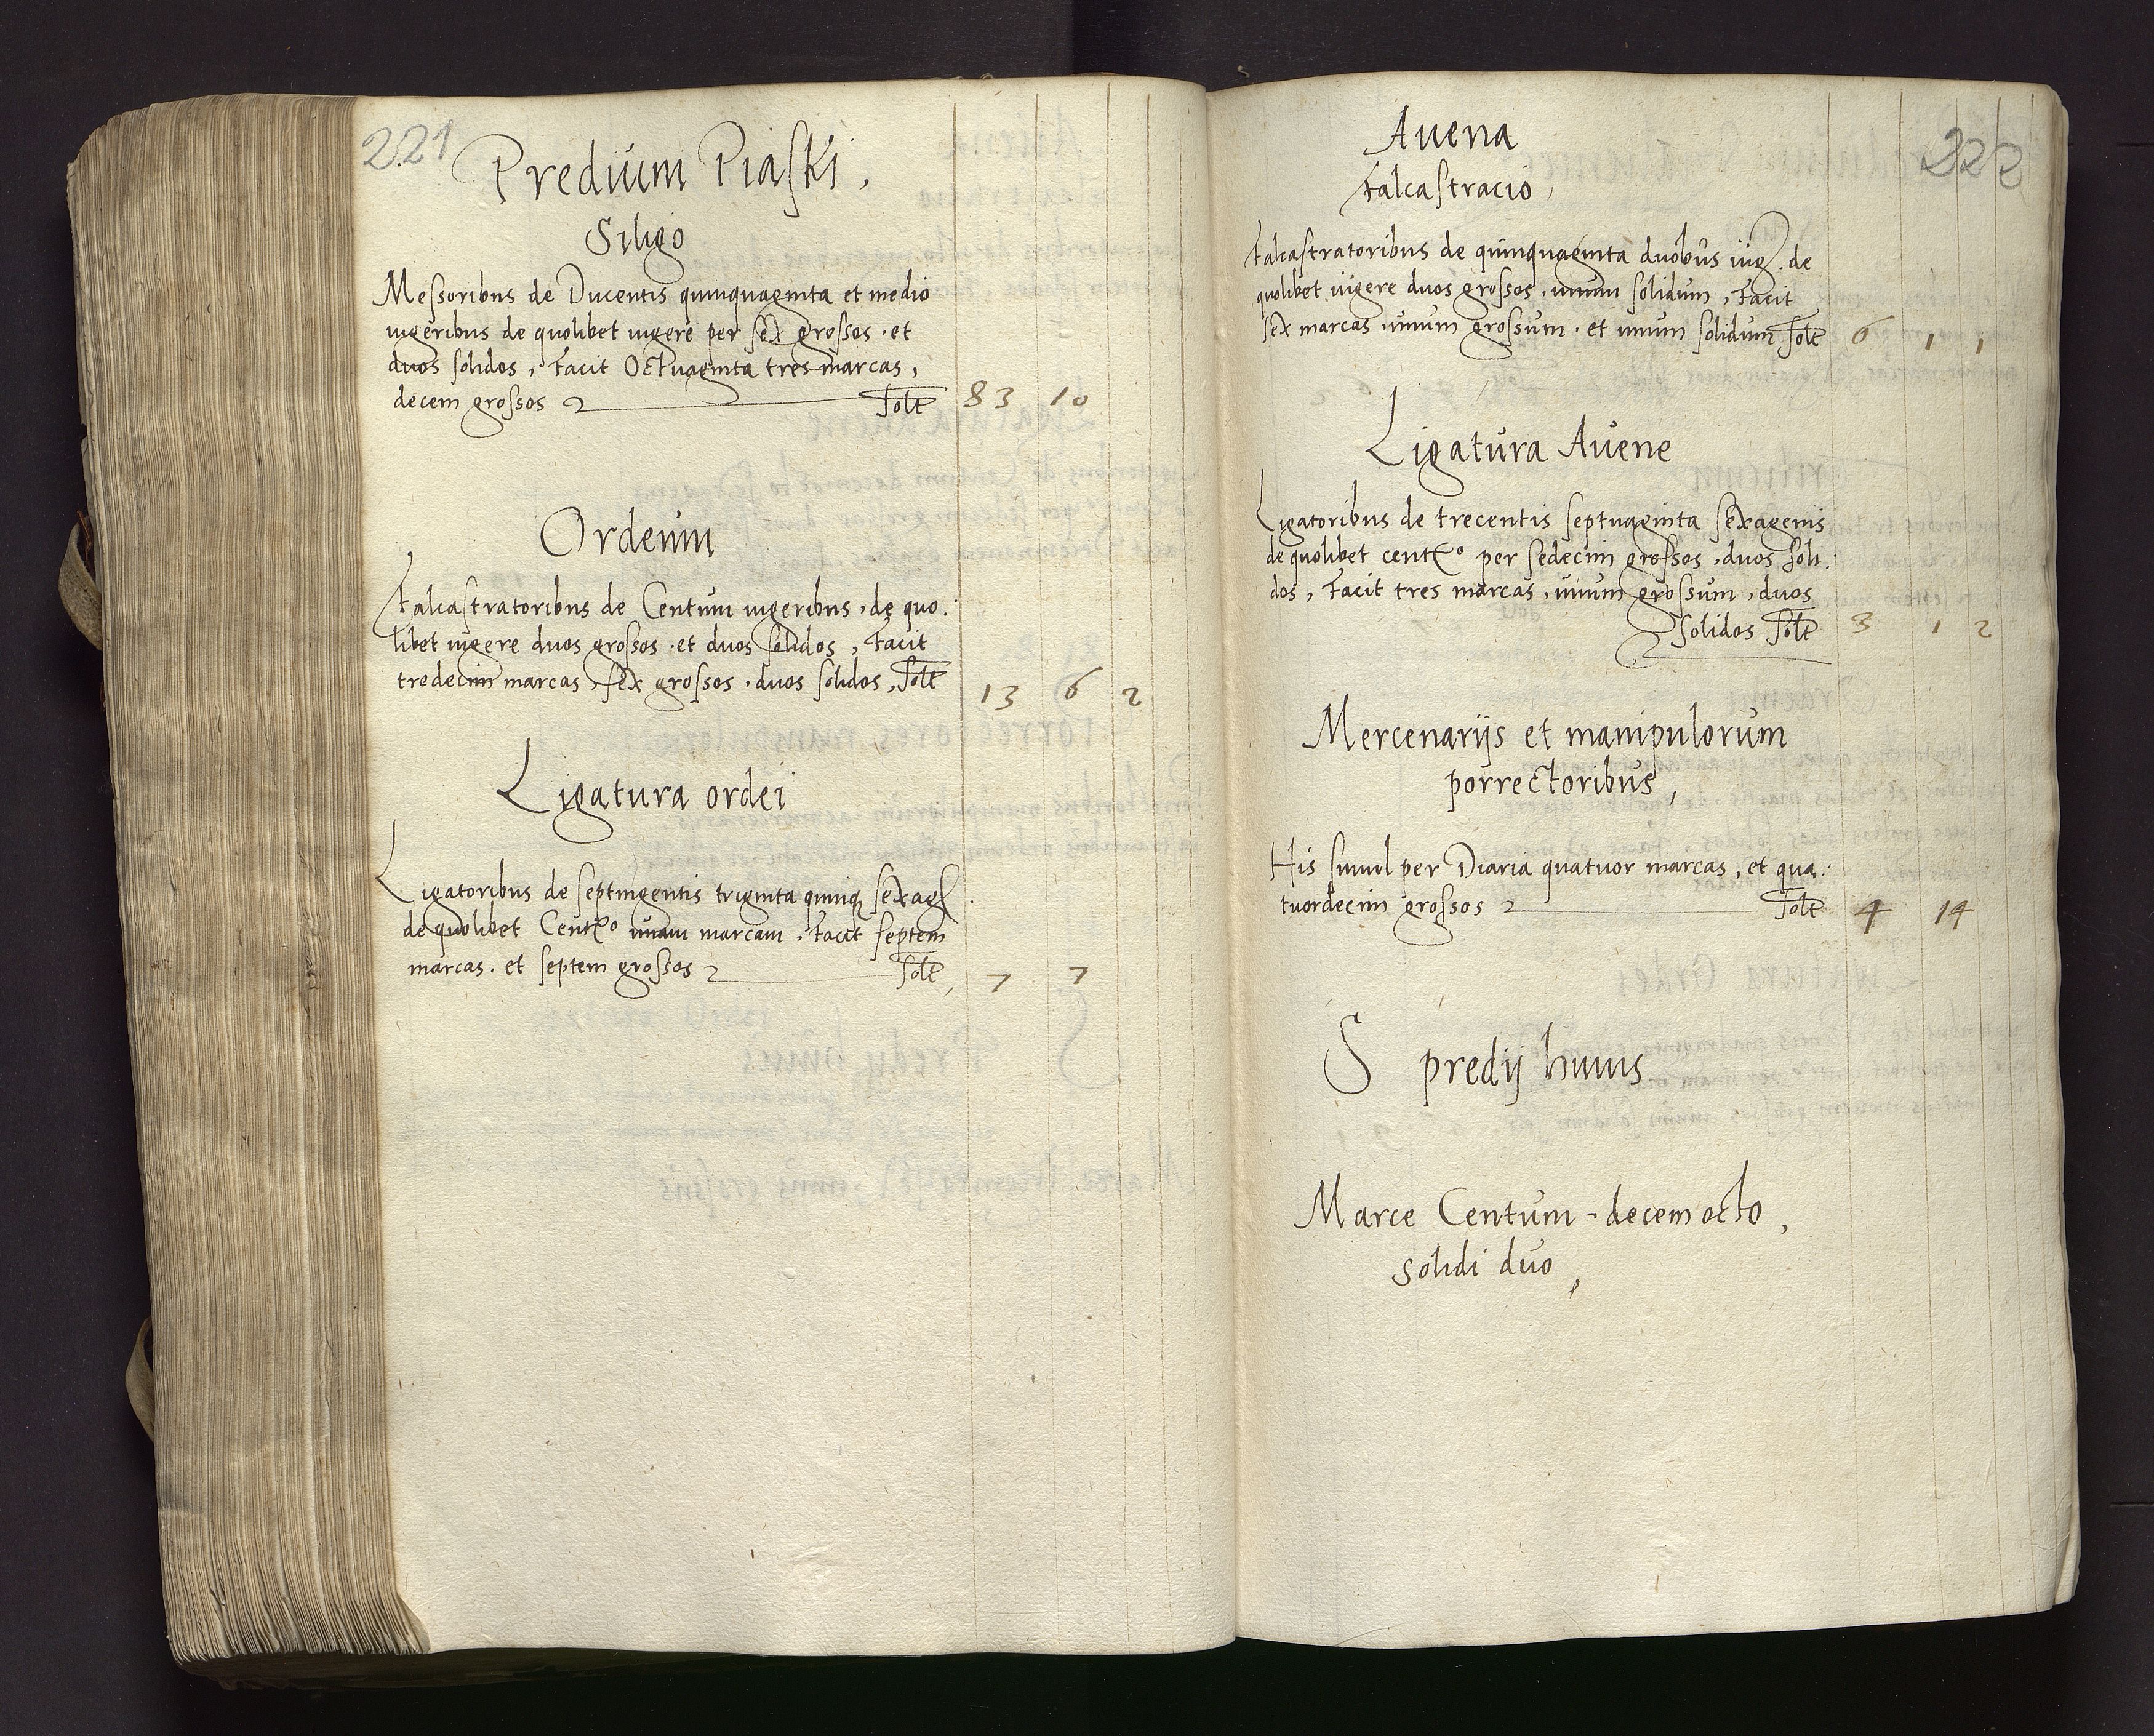 221
Predium Piaski,
Siligo
Messoribus de Ducentis quinquaginta et medio
iugeribus de quolibet iugere per sex grossos · et
duos solidos, Facit Octuaginta tres marcas,
decem grossos Solt 83 10
Ordeum
Falcastratoribus de Centum iugeribus, de quo.
libet iugere duos grossos · et duos solidos, Facit
tredecim marcas, sex grossos, duos solidos, Solt 13 6 2
Ligatura ordei
Ligatoribus de septingentis triginta quinq sexag
de quolibet Centro unam marcam, Facit septem
marcas · et septem grossos Solt 7 7
222
Auena
Falcastracio,
Falcastratoribus de quinquaginta duobus iug. de
quolibet iugere duos grossos, unum solidum, Facit
sex marcas, unum grossum · et unum solidum Solt 6 1 1
Ligatura Auene
Ligatoribus de trecentis septuaginta sexagenis
de quolibet centro per sedecim grossos, duos soli:
dos, Facit tres marcas, unum grossum, duos
solidos Solt 3 1 2
Mercenarijs et manipulorum
porrectoribus,
His simul per Diaria quatuor marcas, et qua:
tuordecim grossos Solt 4 14
S predij huius
Marce Centum - decem octo,
solidi duo,